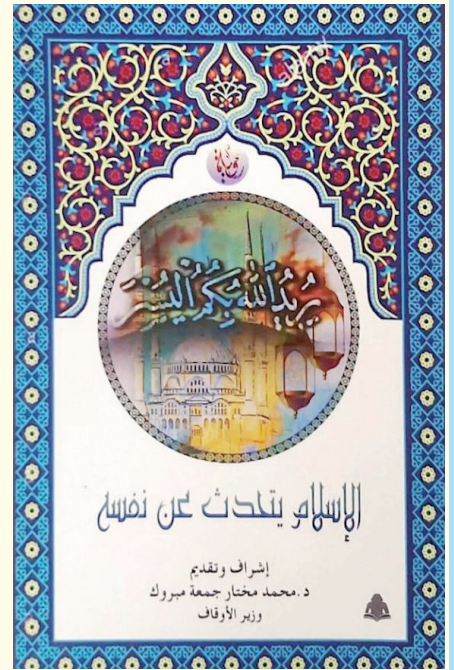 رؤية
يريد الله بكم اليسر
الإسلام يتحدث عن نفسه
إشراف وتقديم
د. محمد مختار جمعة مبروك
وزير الأوقاف